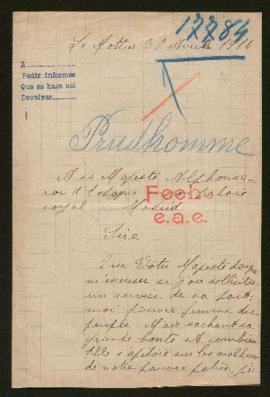 17784
La Motte 30 Avril 1916
A
Pedir informes
Que se hace así
Devolver
Prudhomme
A sa Majesté Alphonse
roi d'Espagne palais
royal Madrid
Fecho
e.a.e.
Sire
Que Votre Majesté daigne
m'excuser si j'ose solliciter
un service de sa part
moi pauvre femme du
peuple Mais sachant sa
grande bonté et combien
Elle s'apitoie sur les malheurs
de notre pauvre patrie, je